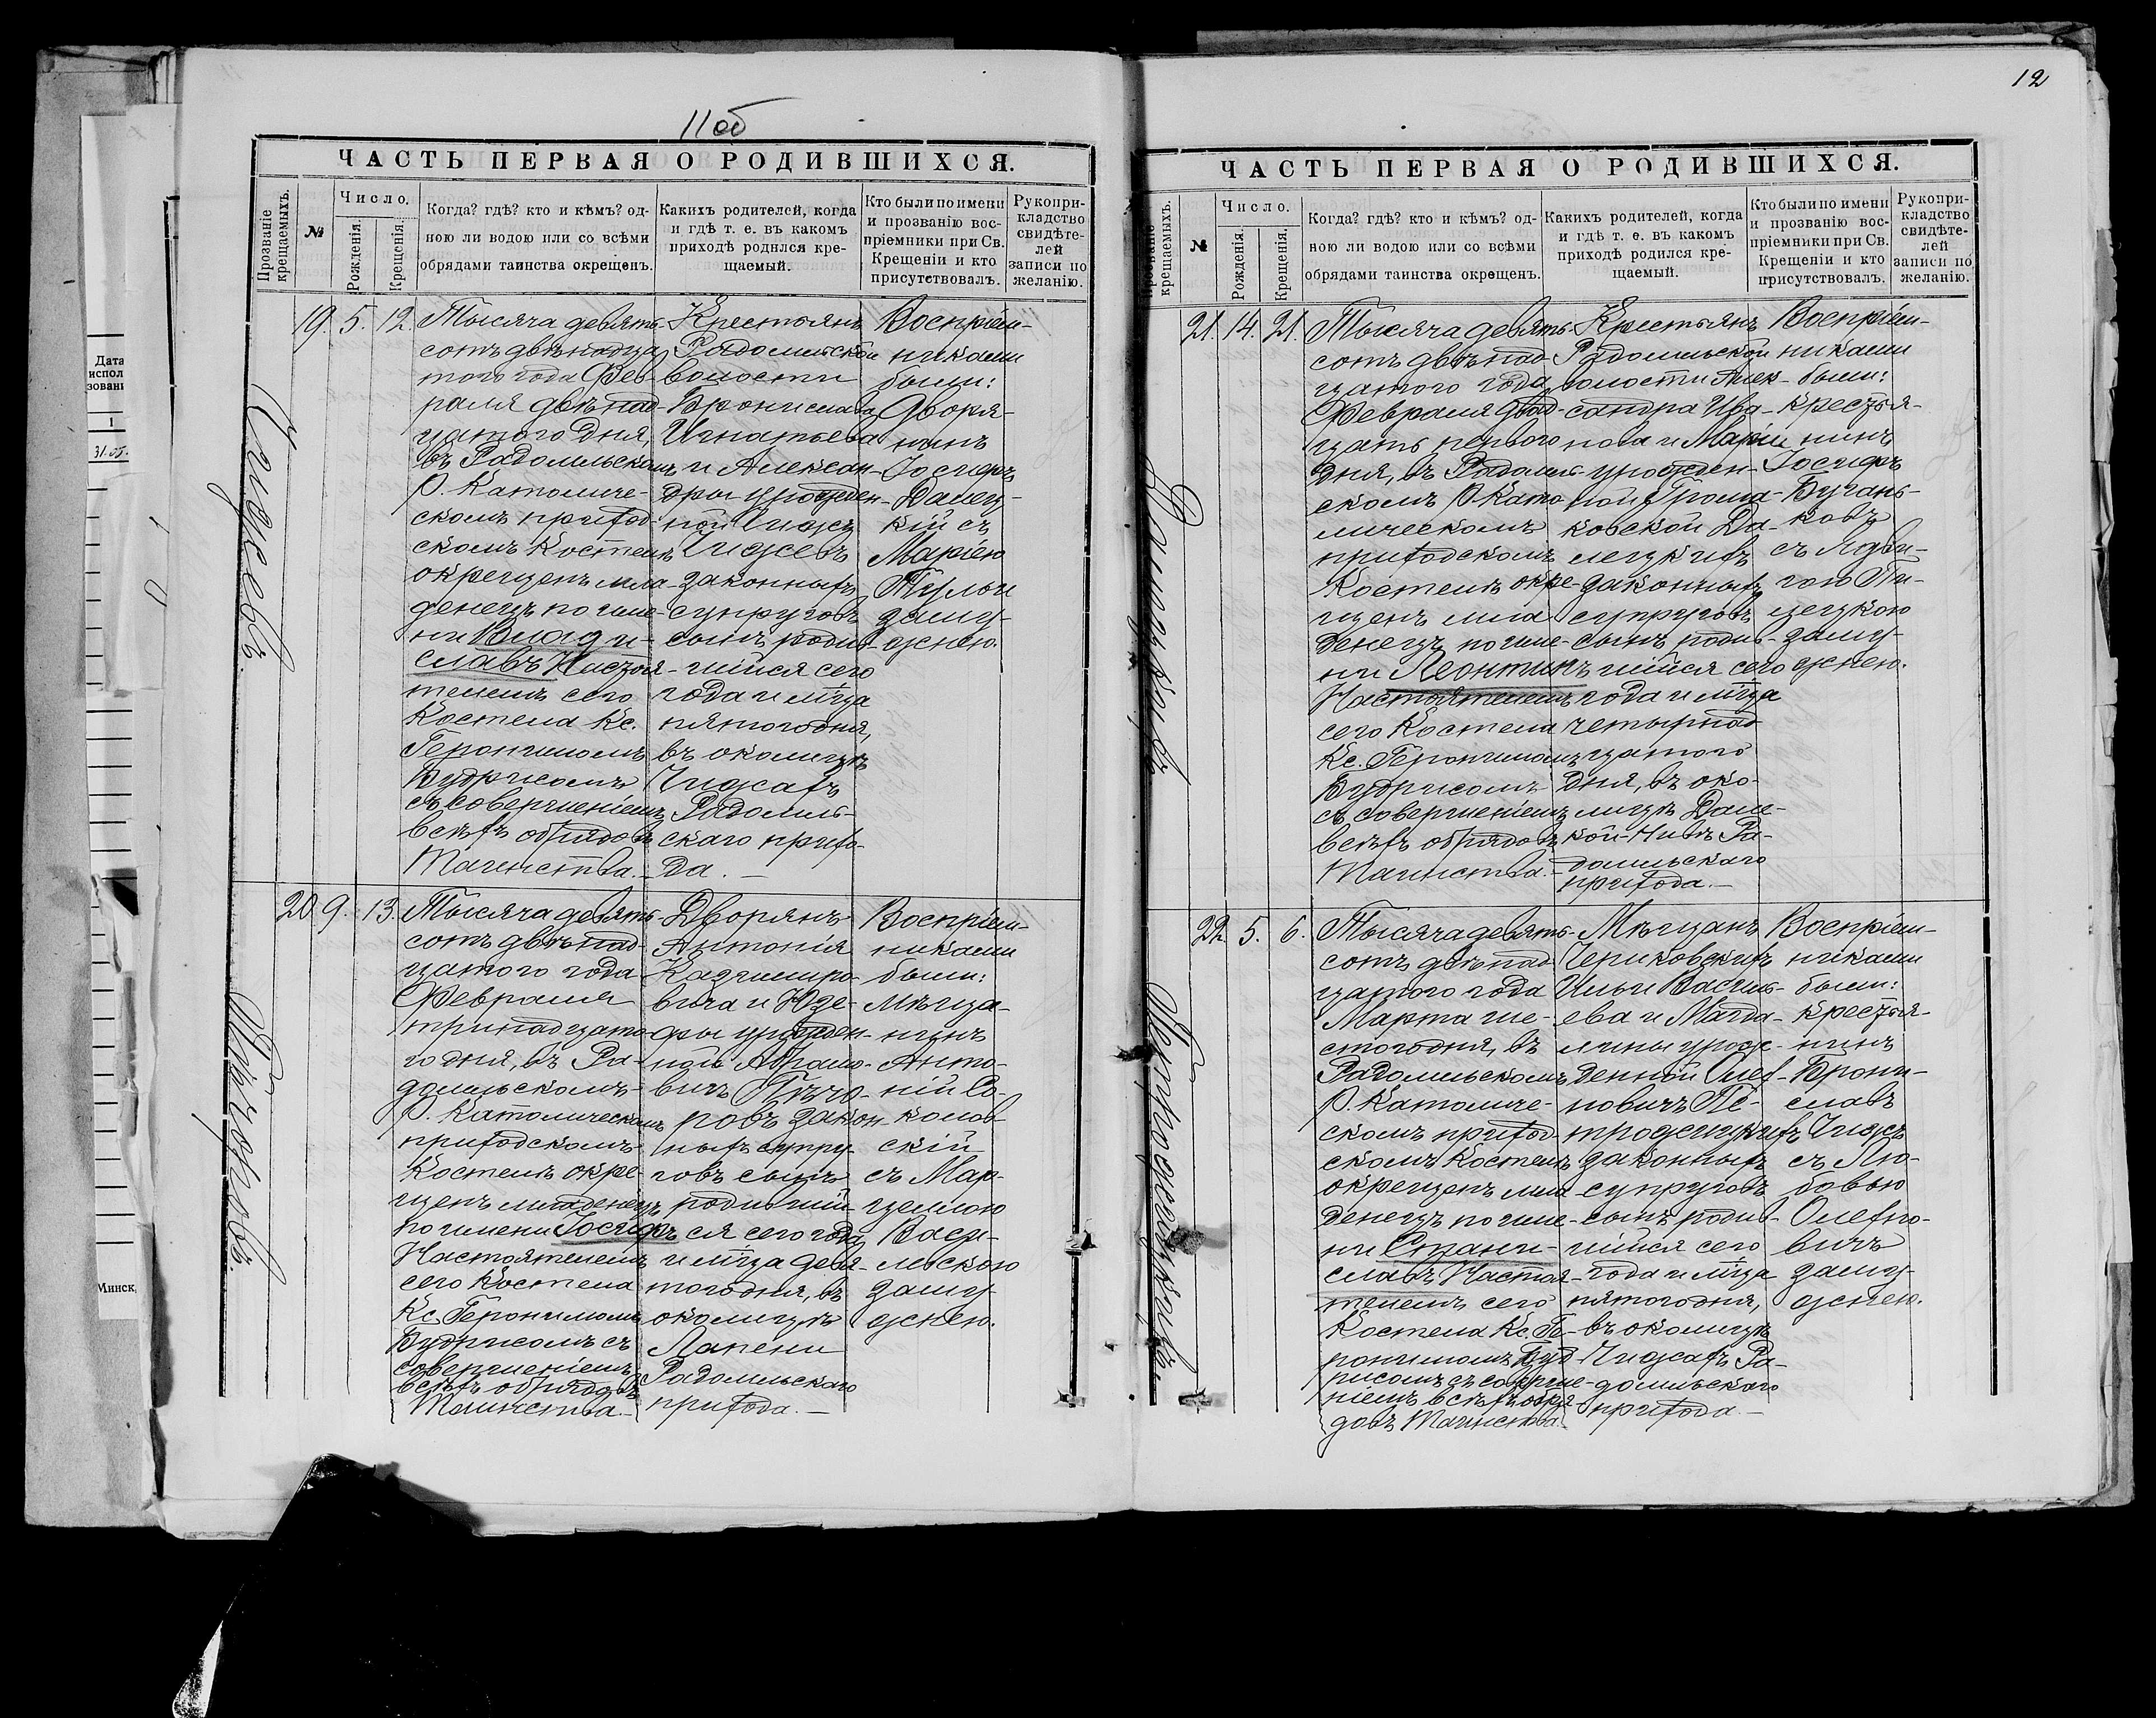 11об
ЧАСТЬ ПЕРВАЯ О РОДИВШИХСЯ.
Прозваніе крещаемыхъ.
№
Число.
Рожденія.
Крещенія.
Когда? гдѣ? кто и кѣмъ? од-
ною ли водою или со всѣми
обрядами таинства окрещенъ.
Какихъ родителей, когда
и гдѣ т. е. въ какомъ
приходѣ родился кре-
щаемый.
Кто были по имени
и прозванію вос-
пріемники при Св.
Крещеніи и кто
присутствовалъ.
Рукопри-
кладство
свидѣте-
лей
записи по
желанію.
Чижевъ.
19. 5. 12.
Тысяча девять-
сотъ двѣнадца
того года Фев-
раля двѣнад-
цатого дня,
въ Радомльскомъ
Р. Католиче-
скомъ приход-
скомъ Костелѣ
окрещенъ мла-
денецъ по име-
ни Влади-
славъ Настоя-
телемъ сего
Костела Кс.
Геронимомъ
Будрисомъ
съ совершеніемъ
всѣхъ обрядовъ
Таинства.-
Крестьянъ
Радомльской
волости
Бронислава
Игнатьева
и Алексан-
дры урожден-
ной Чижъ
Чижевъ
законныхъ
супруговъ
сынъ, родив-
шійся сего
года и м-ца
пятого дня,
въ околицѣ
Чижахъ
Радомль-
скаго прихо-
да.-
Воспріем-
никами
были:
Дворя-
нинъ
Іосифъ
Далец-
кій съ
Маріею
заму-
жнею.
20 9. 13.
Тысяча девять-
сотъ двѣнад-
цатого года
Февраля
тринадцато-
го дня, въ Ра-
домльскомъ-
Р. Католическомъ
приходскомъ-
Костелѣ окре-
щенъ младенецъ
по имени Іосифъ
Настоятелемъ
сего Костела
Кс. Геронимомъ
Будрисомъ съ
совершеніемъ
всѣхъ обрядовъ
Таинства.-
Дворянъ
Антонія
Казимиро-
вича и Юзе-
фы урожден-
ной Абрамо-
вичъ
закон-
ныхъ супру-
говъ сынъ
родившій-
ся сего года
и м-ца девя-
того дня, въ
околицѣ
Лапени
Радомльскаго
прихода.-
Воспріем-
никами
были:
Мѣща-
нинъ
Анто-
ній Со-
колов
скій
съ Мар-
целлою
заму-
жнею.
12
ЧАСТЬ ПЕРВАЯ О РОДИВШИХСЯ.
Прозваніе крещаемыхъ.
№
Число.
Рожденія.
Крещенія.
Когда? гдѣ? кто и кѣмъ? од-
ною ли водою или со всѣми
обрядами таинства окрещенъ.
Какихъ родителей, когда
и гдѣ т. е. въ какомъ
приходѣ родился кре-
щаемый.
Кто были по имени
и прозванію вос-
пріемники при Св.
Крещеніи и кто
присутствовалъ.
Рукопри-
кладство
свидѣте-
лей
записи по
желанію.
21. 14. 21.
Тысяча девять-
сотъ двѣнад-
цатого года
Февраля двад-
цать первого
дня, въ Радомль-
скомъ Р. Като-
лическомъ
приходскомъ
Костелѣ окре-
щенъ мла
денецъ по име-
ни Леонтинъ
Настоятелемъ
сего Костела
Кс. Геронимомъ
Будрисомъ
съ совершеніемъ
всѣхъ обрядовъ
Таинства.-
Крестьянъ
Радомльской
волости Алек-
сандра Ива-
нова и Маріи
урожден-
ной Грома-
ковской Да-
лецкихъ
законныхъ
супруговъ
сынъ, родив-
шійся сего
года и м-ца
четырнад
цатого
дня, въ око-
лицѣ Дале-
кой-Нивѣ Ра-
домльскаго
прихода.-
Воспріем-
никами
были:
крестья-
нинъ
Іосифъ
Бучань-
ковъ
съ
заму-
жнею.
22. 5. 6.
Тысяча девять-
сотъ двѣнад
цатого года
Марта ше-
стого дня, въ
Радомльскомъ
Р. Католиче-
скомъ приход-
скомъ Костелѣ
окрещенъ мла
денецъ по име-
ни Стани-
славъ Настоя-
телемъ сего
Костела Кс. Ге-
ронимомъ Буд-
рисомъ съ соверше-
ніемъ всѣхъ обря-
довъ Таинства.-
Мѣщанъ
Чериковскихъ
Ильи Василь-
ева и Магда-
лины урож-
денной Олех-
новичъ Пе-
тродецкихъ
законныхъ
супруговъ
сынъ, родив-
шійся сего
года и м-ца
пятого дня,
въ околицѣ
Чижахъ Ра-
домльскаго
прихода.-
Воспріем-
никами
были:
крестья-
нинъ
Брони-
славъ
Чижъ
съ Лю-
бовью
Олехно-
вичъ
заму-
жнею.
Дата
испол
зовани
1
Минск,